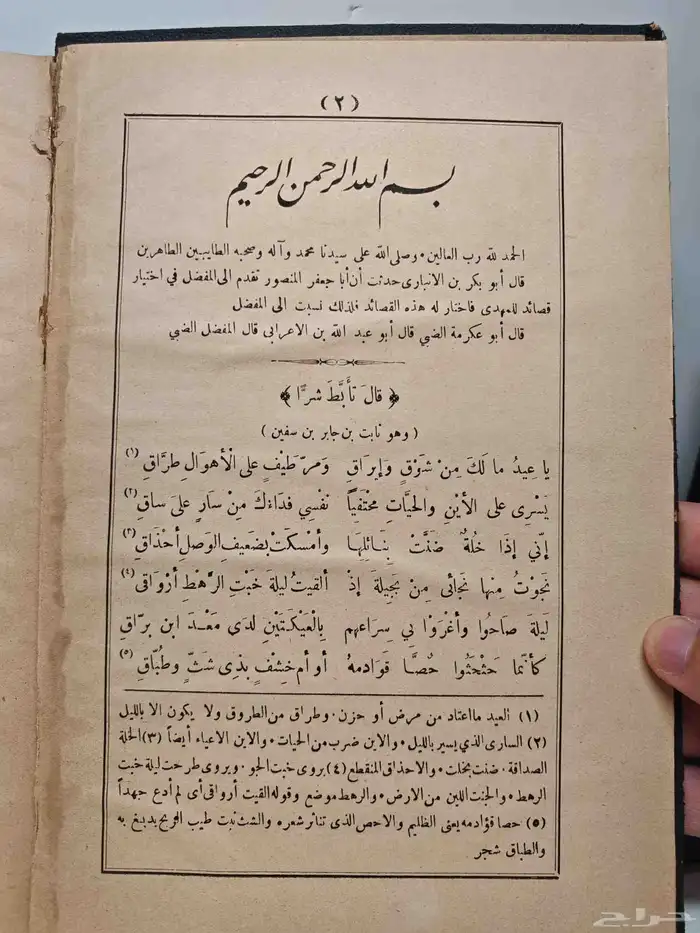 (٢)
بسم الله الرحمن الرحيم
الحمد لله رب العالمين • وصلى الله على سيدنا محمد وآله وصحبه الطايبين الطاهرين
قال أبو بكر بن الانبارى حدثت أن أبا جعفر المنصور تقدم الى المفضل في اختيار
قصائد للمهدى فاختار له هذه القصائد فلذلك نسبت الى المفضل
قال أبو عكرمة الضبي قال أبو عبد الله بن الاعرابى قال المفضل الضبي
﴿ قالَ تأَبَّطَ شرًّا ﴾
( وهو ثابت بن جابر بن سفين )
يا عِيدُ ما لَكَ مِنْ شَوْقٍ وَإِيرَاقِ وَمَرّ طَيْفٍ على الْأهوَالِ طرَّاقِ (١)
يَسْرِى على الأَيْنِ والحيَّاتِ محْتفِياً نفْسِي فدَاءُكَ مِنْ سَارٍ علَى ساقِ (٢)
إنّي إذَا خُلةٌ ضنَّتْ بِنَائلِهَا وأمْسكَتْ بضَعيفِ الوَصلِ أحْذَاقِ (٣)
نجَوْتُ مِنها نجَائى مِنْ بَجيلةَ إذْ ألقيتُ ليلةَ خَبْتِ الرَّهْطِ أرْوَاقى (٤)
ليلةَ صَاحُوا وأغْرَوْا بِي سِرَاعهم بِالْعَيْكَتَيْنِ لدَى مَعْدَ ابن برّاقِ
كأنّما حَثْحَثُوا حُصًّا قوَادمهُ أو أم خِشْفٍ بذِى شَثّ وطُبّاقِ (٥)
(١) العيد مااعتاد من مرض أو حزن • وطراق من الطروق ولا يكون الا بالليل
(٢) السارى الذي يسير بالليل • والاين ضرب من الحيات • والاين الاعياء أيضاً (٣) الخلة
الصداقة • ضنت بخلت • والاحذاق المنقطع (٤) يروى خبت الجو • ويروى طرحت ليلة خبت
الرهط • والخبت اللين من الارض • والرهط موضع وقوله القيت أرواقى أى لم أدع جهداً
(٥) حصا قوادمه يعنى الظليم والاحص الذى تناثر شعره والشث نبت طيب الريح يدبغ به
والطباق شجر
حراج